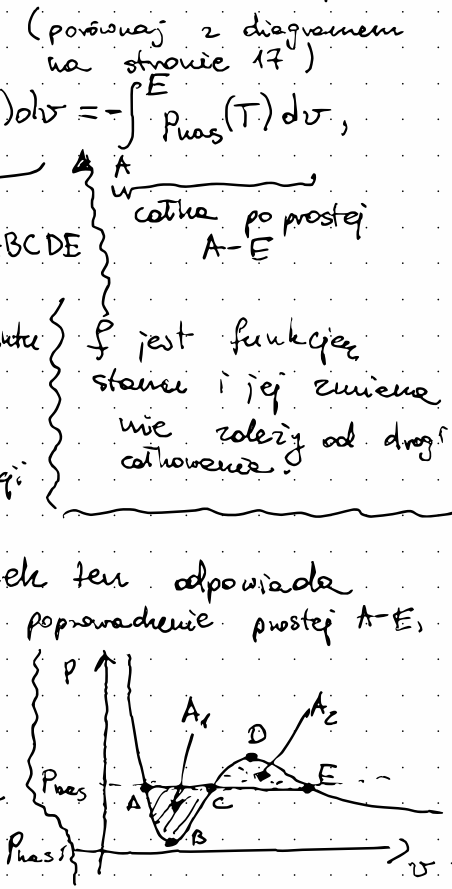 (porównaj z diagramem
na stronie 17)
)dv = -∫_A^E p_nas(T) dv,
całka po prostej
A-E
BCDE
f jest funkcją
stanu i jej zmiana
nie zależy od drogi
całkowania.
ek ten odpowiada
poprowadzenie prostej A-E,
P
A₁
A₂
D
P_nas
A
C
E
B
v